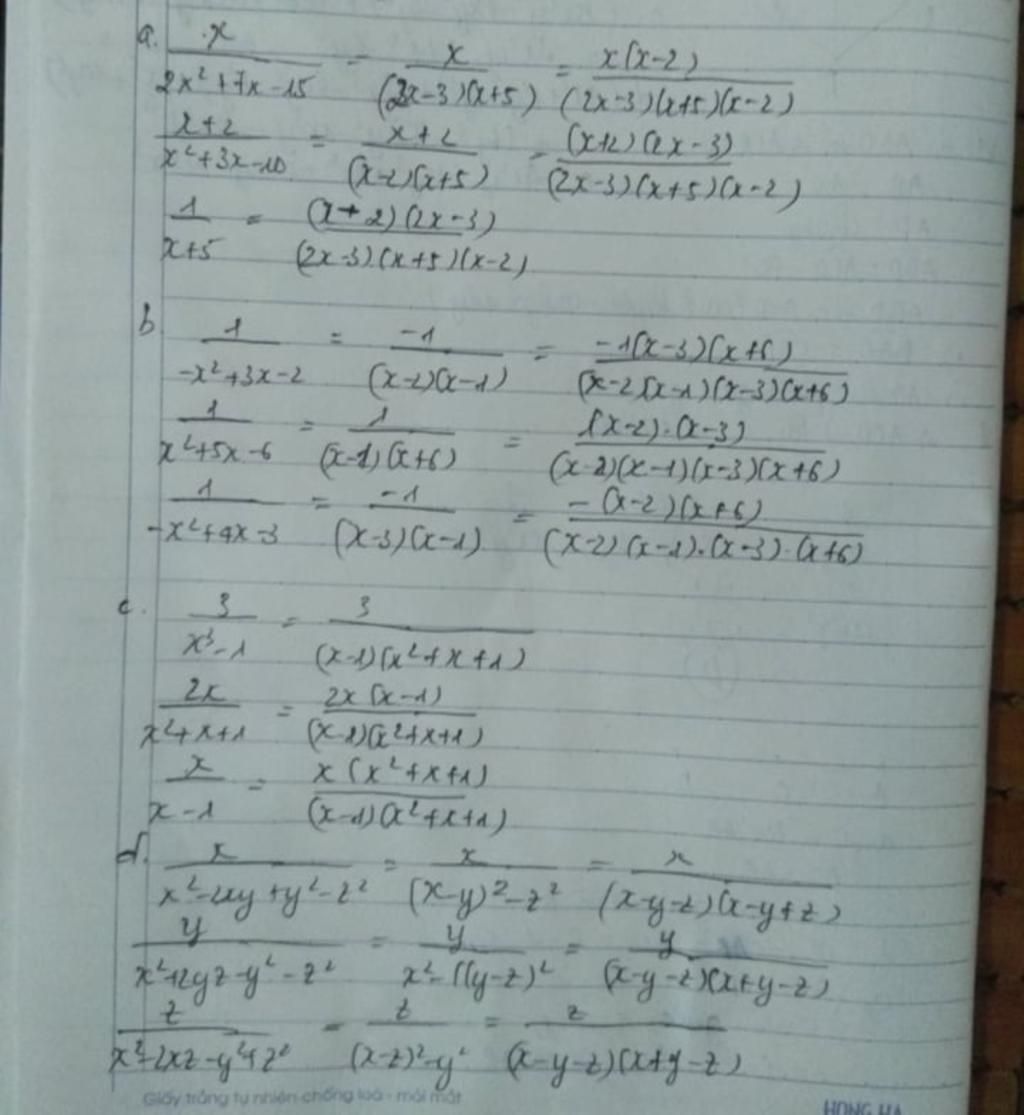 a. x/(2x²+7x-15) = x/((2x-3)(x+5)) = x(x-2)/((2x-3)(x+5)(x-2))
(x+2)/(x²+3x-10) = (x+2)/((x-2)(x+5)) = (x+2)(2x-3)/((2x-3)(x+5)(x-2))
1/(x+5) = (x-2)(2x-3)/((2x-3).(x+5)(x-2))
b 1/(-x²+3x-2) = -1/((x-2)(x-1)) = -1(x-3)(x+6)/((x-2)(x-1)(x-3)(x+6))
1/(x²+5x-6) = 1/((x-1)(x+6)) = 1(x-2).(x-3)/((x-2)(x-1)(x-3)(x+6))
1/(-x²+4x-3) = -1/((x-3)(x-1)) = -(x-2)(x+6)/((x-2)(x-1).(x-3).(x+6))
c. 3/(x³-1) = 3/((x-1)(x²+x+1))
2x/(x²+x+1) = 2x(x-1)/((x-1)(x²+x+1))
x/(x-1) = x(x²+x+1)/((x-1)(x²+x+1))
d. x/(x²-2xy+y²-z²) = x/((x-y)²-z²) = x/((x-y-z)(x-y+z))
y/(x²+2yz-y²-z²) = y/(x²-((y-z)²) = y/((x-y-z)(x+y-z))
z/(x²-2xz-y²+z²) = z/((x-z)²-y²) = z/((x-y-z)(x+y-z))
Giấy trắng tự nhiên chống loá - mỏi mắt
HONG HA